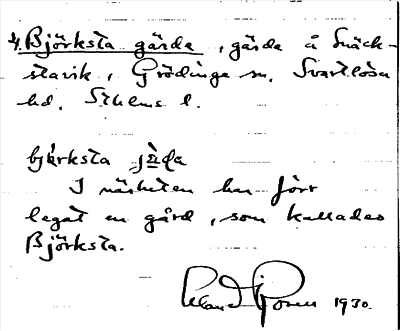 4. Björksta gärde, gärde å Snäck-
stavik, Grödinge sn. Svartlösa
hd. Sthlms l.
björksta
I närheten har förr
legat en gård, som kallades
Björksta.
1930.